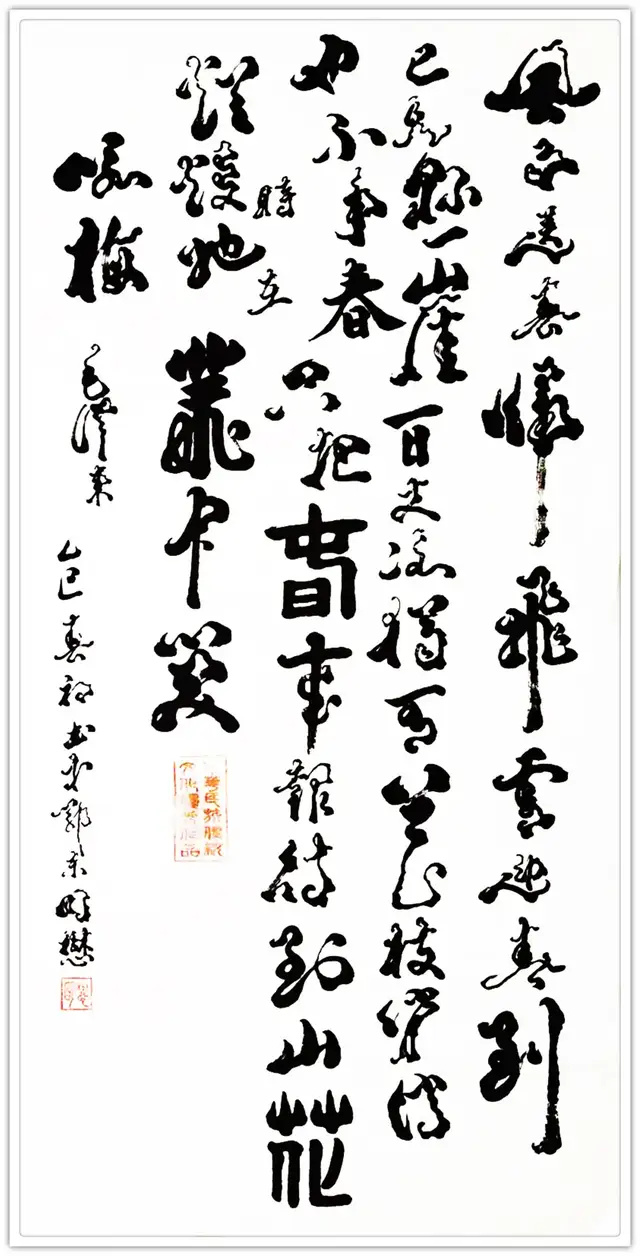 風雨送春歸飛雪迎春到
已是懸崖百丈冰猶有花枝俏俏
也不争春只把春来報待到山花
爛漫時她在叢中笑
咏梅 毛澤東 乙巳春初書於鄂东